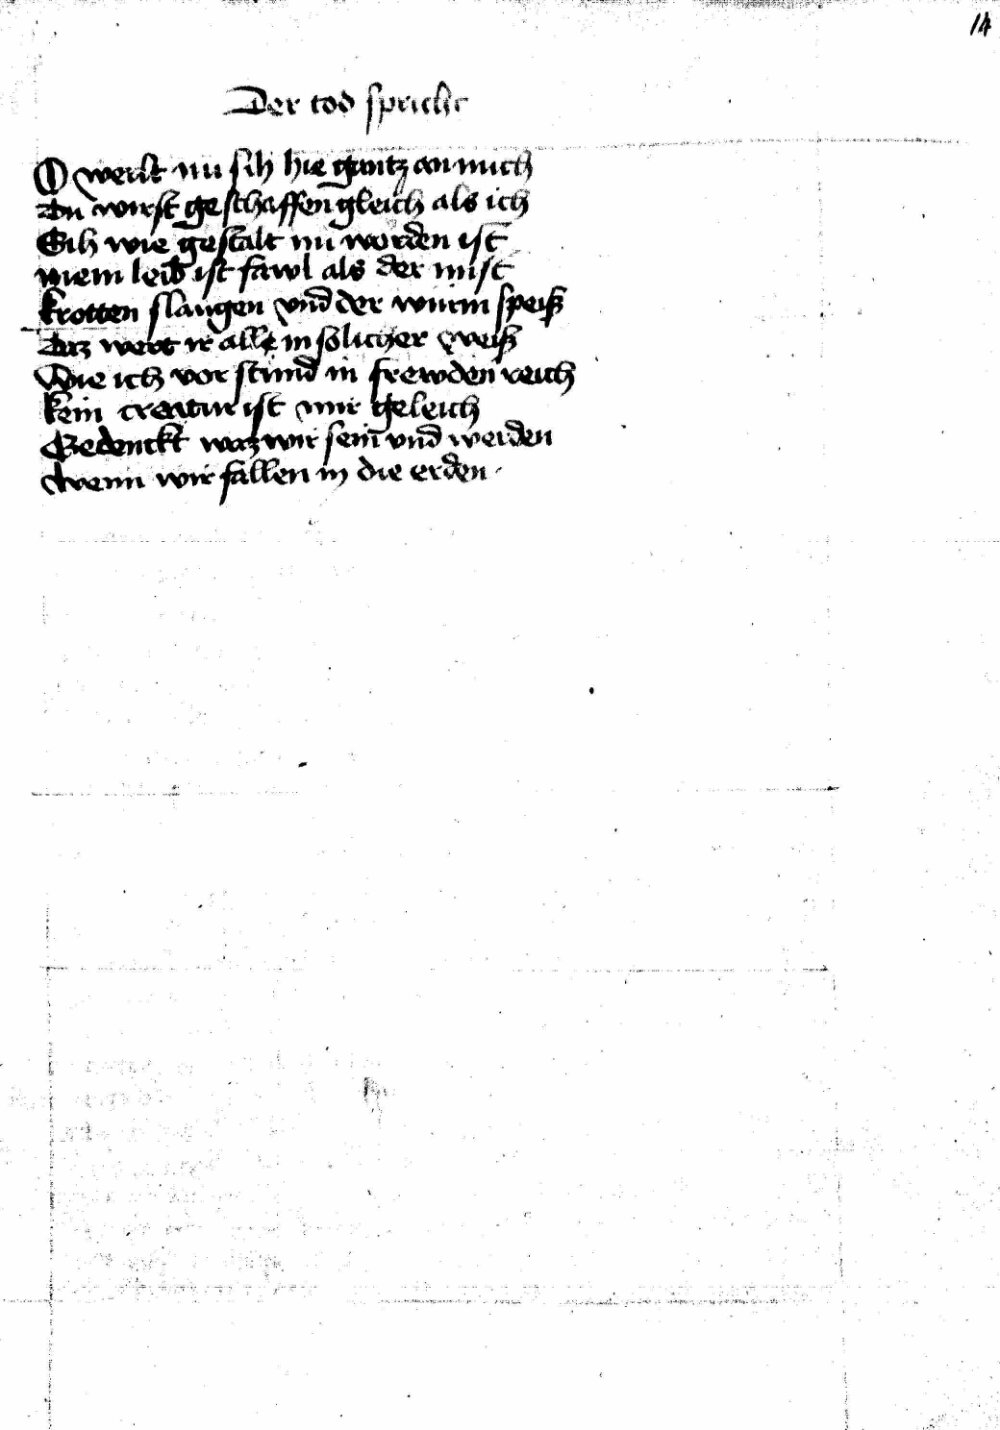 14
Der tod spricht
O werlt nu sih hie gantz an mich
Du wirst geschaffen gleich als ich
Sih wie gestalt nu worden ist
mein leib ist fawl als der mist
krotten slangen vnd der würm speiß
Daz wert ir alle in solicher weiß
Wie ich vor stund in frewden reich
kein creatur ist mir geleich
Gedenckt waz wir sein vnd werden
wenn wir fallen in die erden